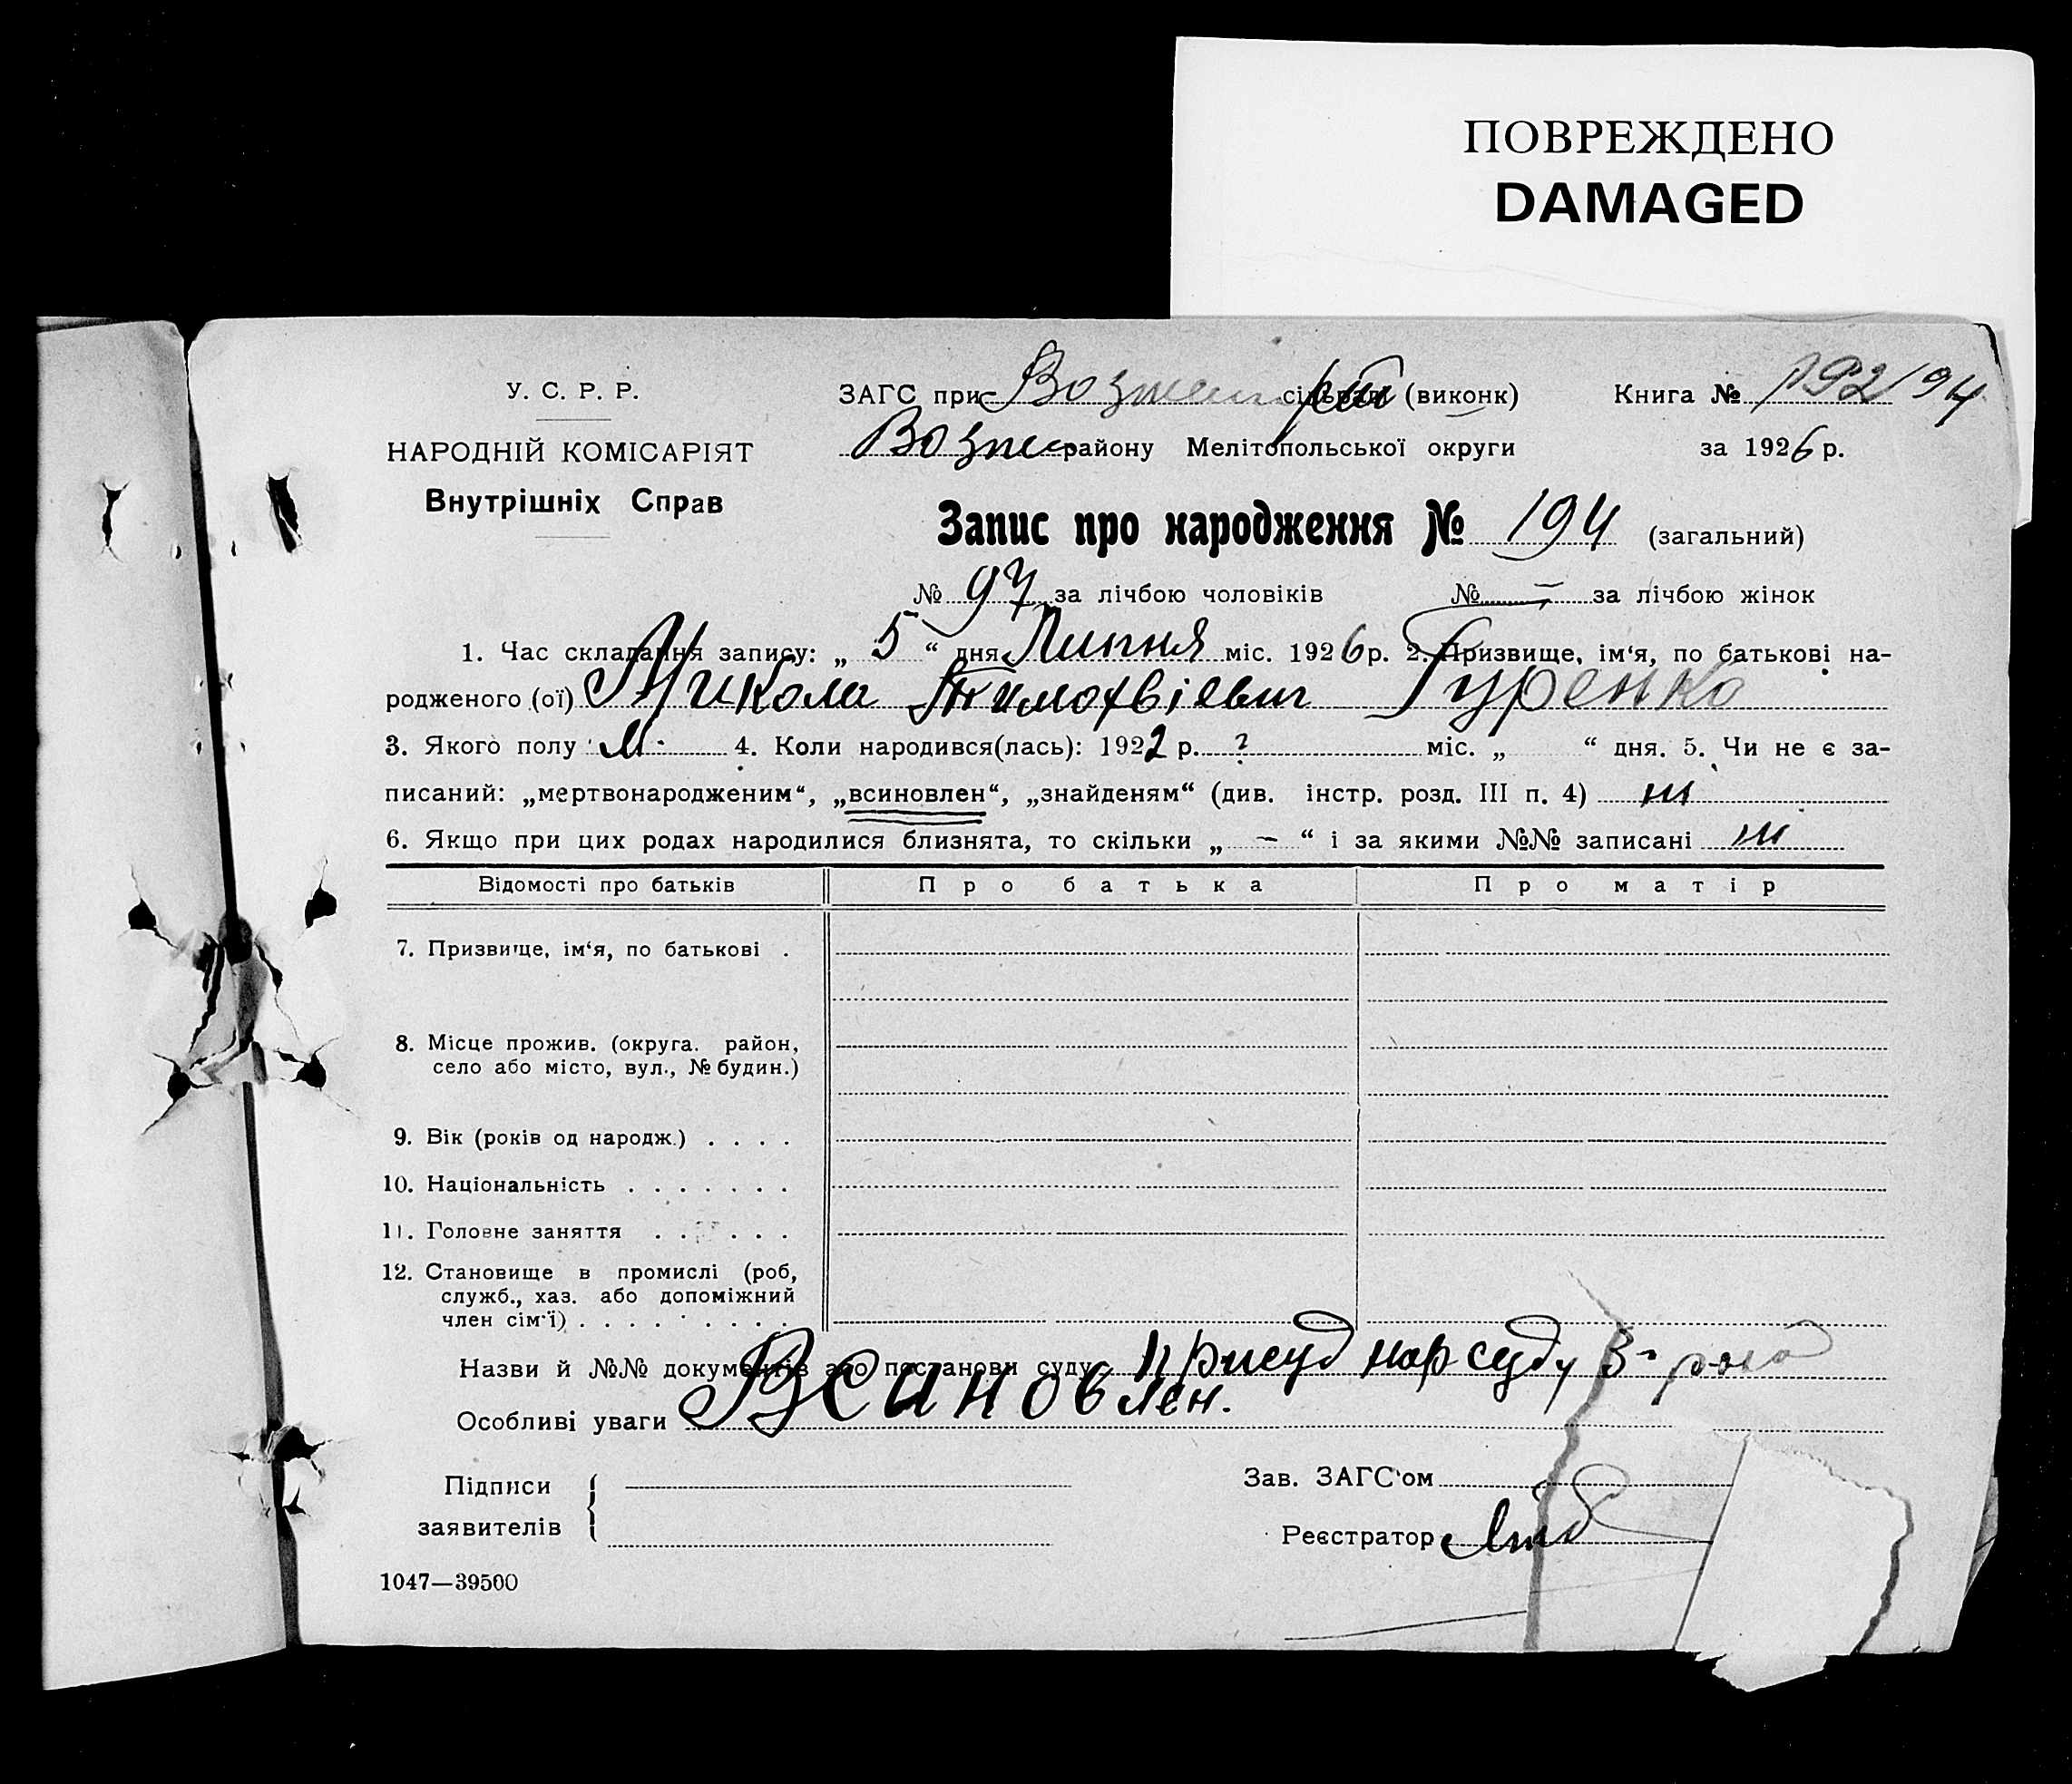 ПОВРЕЖДЕНО
DAMAGED
У. С. Р. Р.
НАРОДНІЙ КОМІСАРІЯТ
Внутрішніх Справ
ЗАГС при сільраді (виконк) Книга № 192/194
Возне району Мелітопольської округи за 1926 р.
Запис про народження № 194 (загальний)
№ 97 за лічбою чоловіків № — за лічбою жінок
1. Час складання запису: „ 5 “ дня Липня міс. 1926 р. 2. Призвище, ім‘я, по батькові на-
родженого (ої) Микола Тимофвіевич Гуренко
3. Якого полу М. 4. Коли народився(лась): 1922 р. ? міс. „ “ дня. 5. Чи не є за-
писаний: „мертвонародженим“, „всиновлен“, „знайденям“ (див. інстр. розд. III п. 4) ні
6. Якщо при цих родах народилися близнята, то скільки „ — “ і за якими №№ записані ні
Відомості про батьків Про батька Про матір
7. Призвище, ім‘я, по батькові .
8. Місце прожив. (округа. район,
село або місто, вул., № будин.)
9. Вік (років од народж.) . . . .
10. Національність . . . . . . .
11. Головне заняття . . . . . .
12. Становище в промислі (роб,
служб., хаз. або допоміжний
член сім‘ї) . . . . . . . . .
Назви й №№ документів або постанови суду Присуд нар суду 3го
Особливі уваги Всиновлен.
Підписи
заявителів
Зав. ЗАГС‘ом
Реєстратор
1047—39500